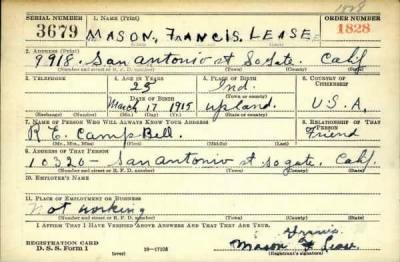 1828
SERIAL NUMBER 1. NAME (Print) ORDER NUMBER
3679 MASON, FRANCIS, LEASE 1828
2. ADDRESS (Print)
9918- San antonio st So gate. Calif
(Number and street or R. F. D. number) (Town) (County) (State)
3. TELEPHONE 4. AGE IN YEARS 5. PLACE OF BIRTH 6. COUNTRY OF CITIZENSHIP
25 Ind.
DATE OF BIRTH
March 17 1915 upland U.S.A.
7. NAME OF PERSON WHO WILL ALWAYS KNOW YOUR ADDRESS 8. RELATIONSHIP OF THAT PERSON
R. E. CampBell. Friend
9. ADDRESS OF THAT PERSON
10320- San antonio st So gate. Calf.
(Number and street or R. F. D. number) (Town) (County) (State)
10. EMPLOYER'S NAME
11. PLACE OF EMPLOYMENT OR BUSINESS
Not working
(Number and street or R. F. D. number) (Town) (County) (State)
I AFFIRM THAT I HAVE VERIFIED ABOVE ANSWERS AND THAT THEY ARE TRUE.
REGISTRATION CARD
D. S. S. Form 1 (over) 16-17105 Mason
(Registrant's signature)